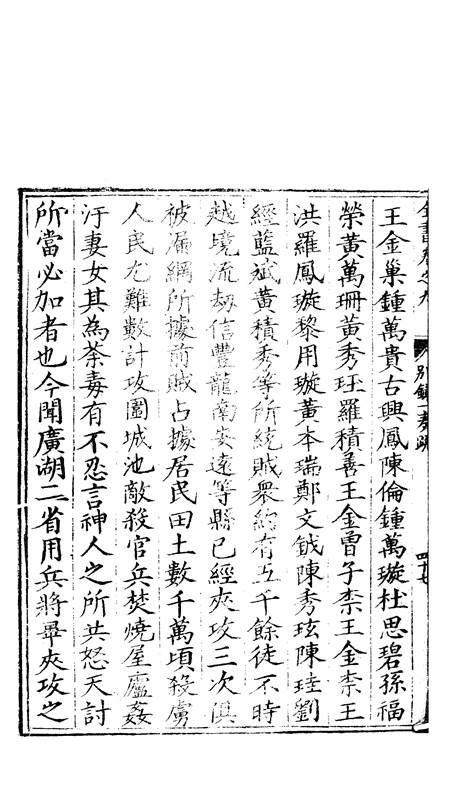 全書卷之九 別錄 奏疏 四十七
王金巢鍾萬貴古興鳳陳倫鍾萬璇杜思碧孫福
榮黃萬珊黃秀玨羅積善王金曾子柰王金柰王
洪羅鳳璇黎用璇黃本瑞鄭文鉞陳秀玹陳珪劉
經藍斌黃積秀等所統賊衆約有五千餘徒不時
越境流劫信豐龍南安遠等縣已經夾攻三次俱
被漏網所據前賊占據居民田土數千萬頃殺虜
人民尤難數計攻圍城池敵殺官兵焚燒屋廬姦
汙妻女其為荼毒有不忍言神人之所共怒天討
所當必加者也今聞廣湖二省用兵將畢夾攻之